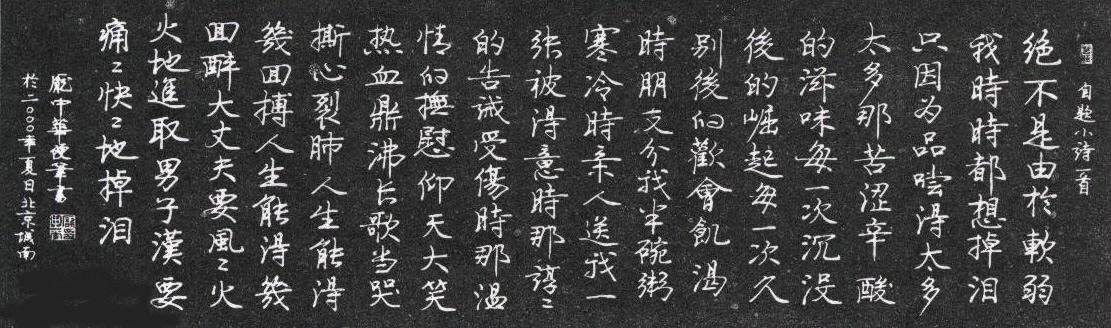 自题小詩一首
绝不是由於軟弱
我時時都想掉泪
只因为品嚐得太多
太多那苦涩辛酸
的滋味每一次沉没
後的崛起每一次久
别後的歡會飢渴
時朋友分我半碗粥
寒冷時亲人送我一
张被得意時那諄〻
的告诫受傷時那温
情的撫慰仰天大笑
热血鼎沸长歌当哭
撕心裂肺人生能得
幾回搏人生能得幾
回醉大丈夫要風〻火
火地進取男子漢要
痛〻快〻地掉泪
龐中華硬筆書
於二〇〇〇年夏日北京城南